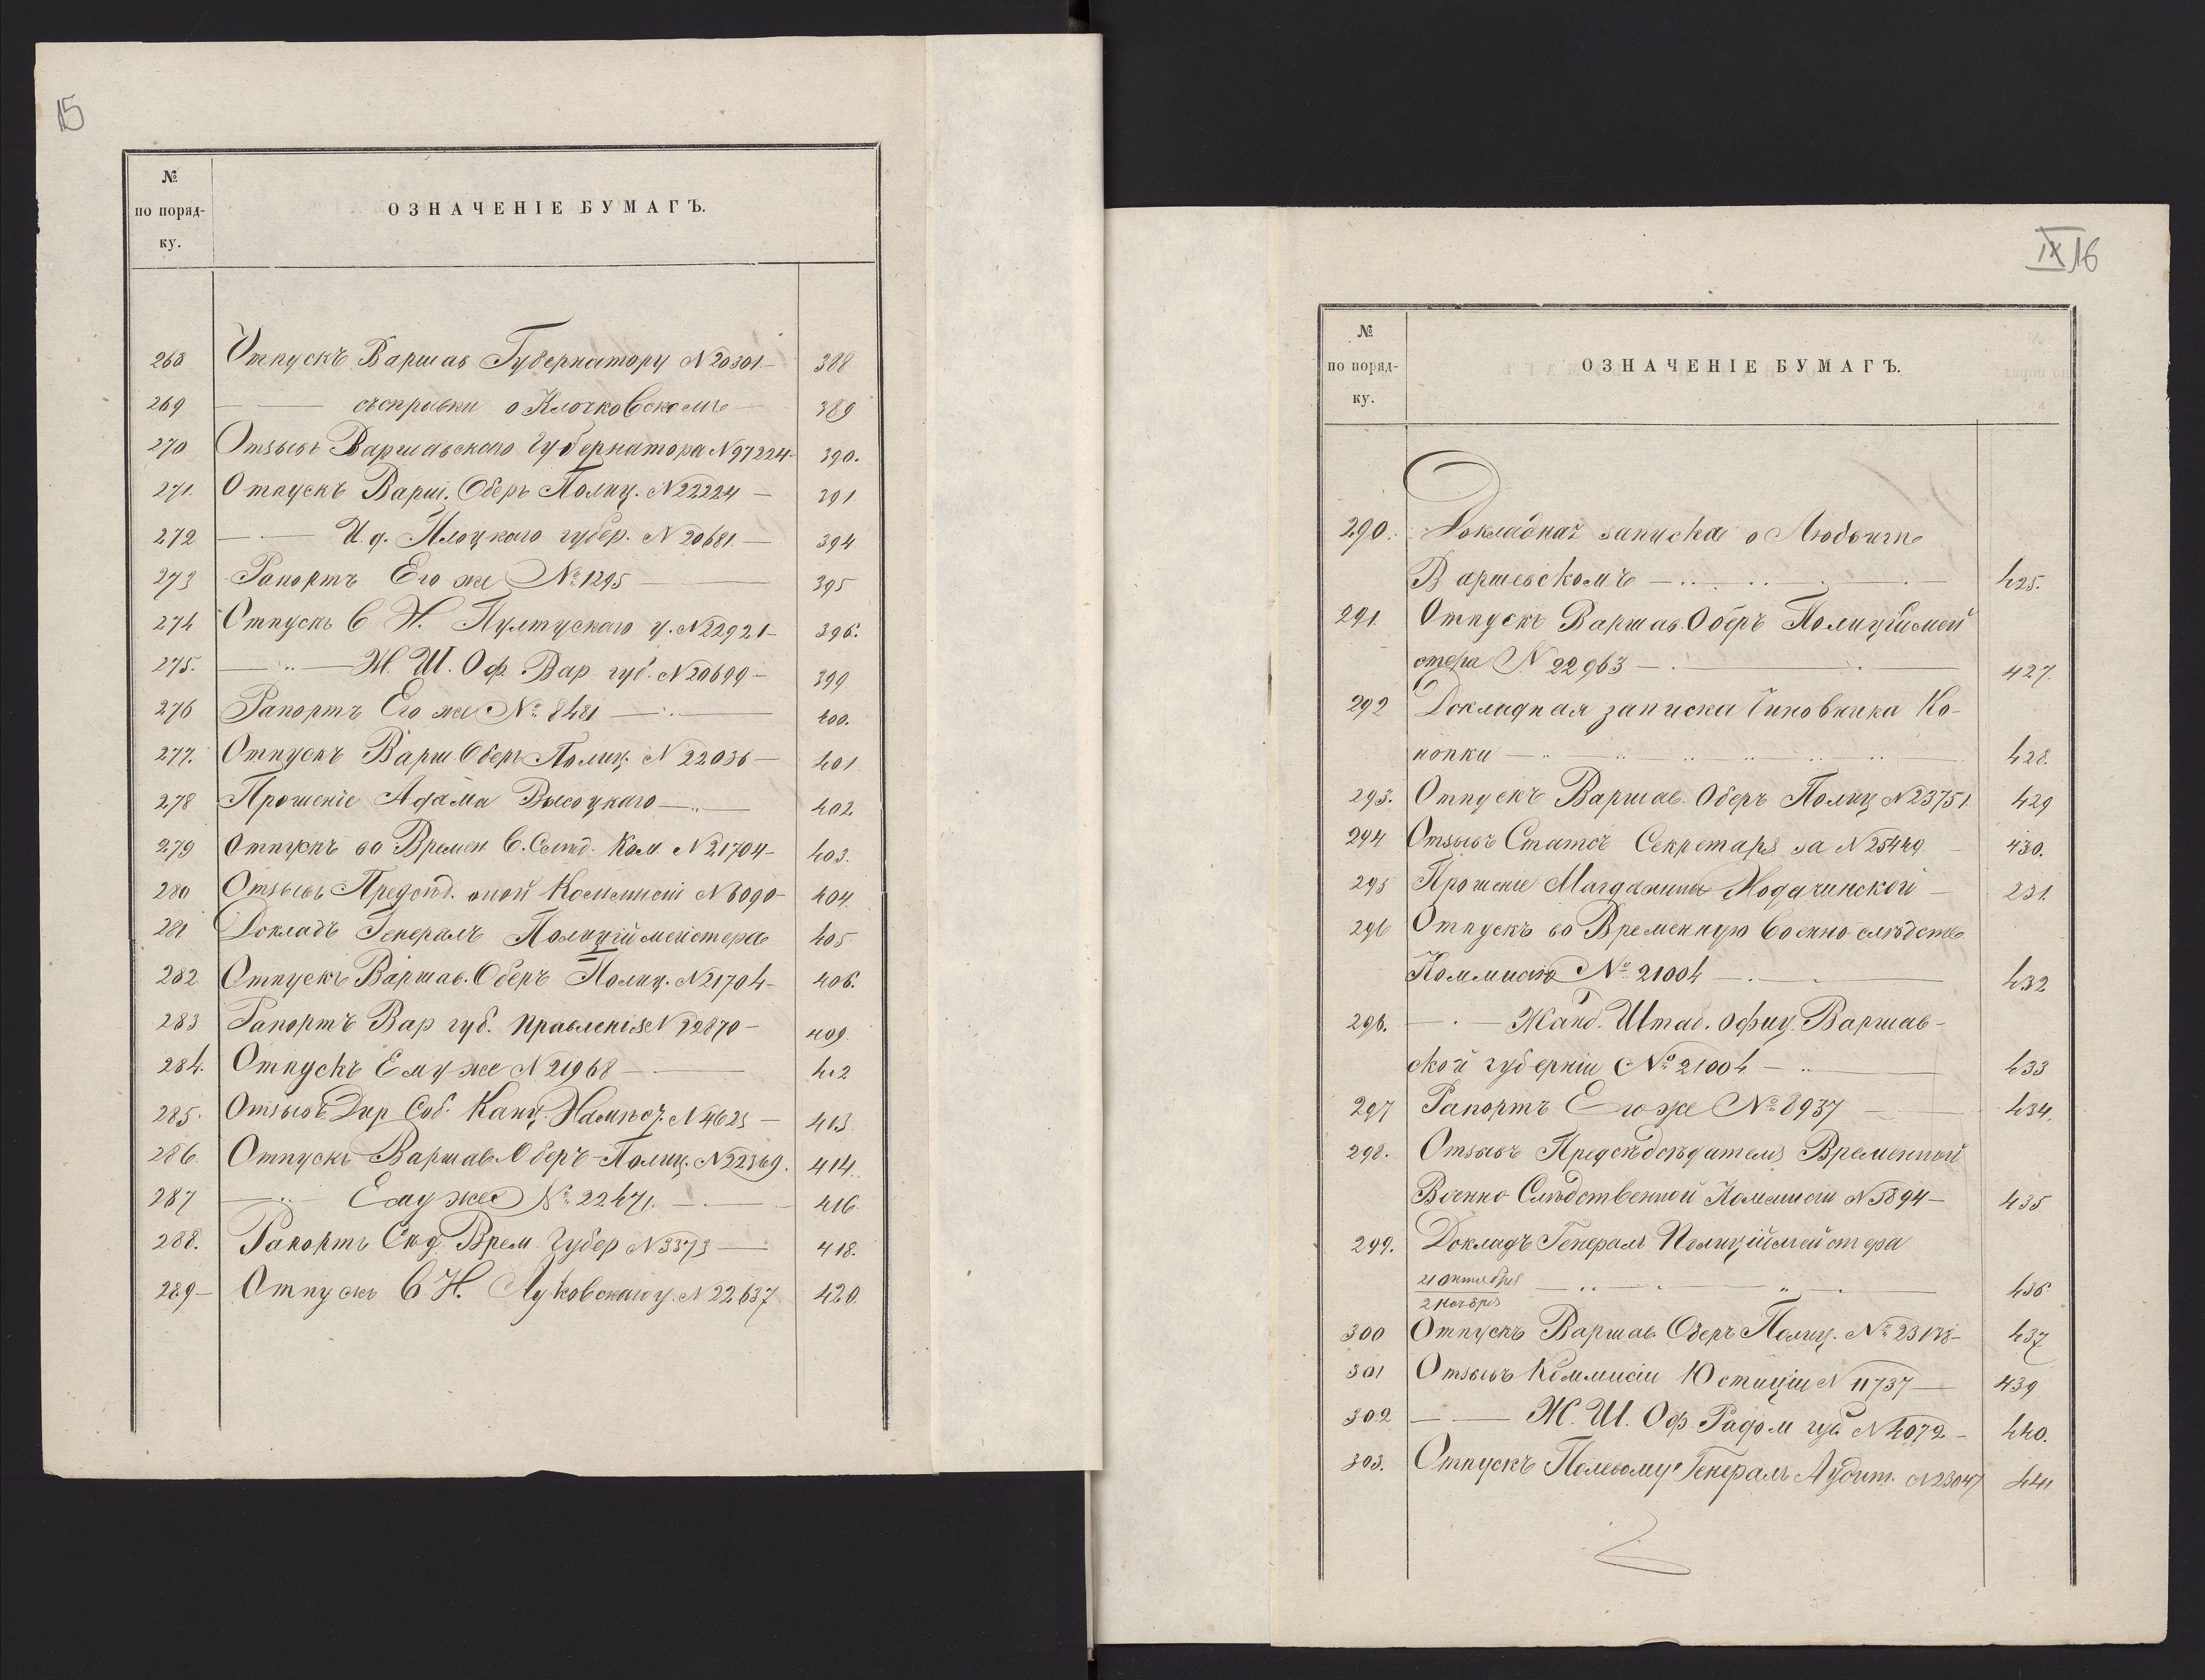 15
№
по поряд-
ку.
ОЗНАЧЕНІЕ БУМАГЪ.
268 Отпускъ Варшав Губернатору N 20301.- 388
269 — съсправки о Клочковскомъ — 389
270 Отзывъ Варшавскаго Губернатора N 97224- 390.
271. Отпускъ Варш. Оберъ Полиц. N 22224 — 391
272 — — И. д. Плоцкаго губер. N 20681.— 394
273 Рапортъ Его же № 1295 — 395
274 Отпускъ В Н. Пултускаго у. N 22921- 396.
275. — „ — Ж. Ш. Оф. Вар губ. N 20699 — 399
276 Рапортъ Его же № 8481 — 400.
277. Отпускъ Варш Оберъ Полиц. N 22036 — 401
278 Прошеніе Адама Высоцкаго — 402.
279 Отпускъ во Времен. В. Слѣд. Ком. N 21704- 403.
280 Отзывъ Предсѣд. оной Коммисіи N 6090- 404.
281 Докладъ Генералъ Полиціймейстера 405
282 Отпускъ Варшав. Оберъ Полиц. N 21704- 406.
283 Рапортъ Вар губ. Правленія N 92870 — 409.
284. Отпускъ Ему же N 21968 — 412
285. Отзывъ Дир Соб. Канц. Намѣст. N 4623 — 413.
286. Отпускъ Варшав Оберъ-Полиц. N 22369. 414.
287 — „ Ему же № 22471. — 416.
288. Рапортъ Скд. Врем. Губер N 3373 — 418.
289- Отпускъ В Н. Луковскаго у. N 22637 420.
IX 16
№
по поряд-
ку.
ОЗНАЧЕНІЕ БУМАГЪ.
290. Докладная записка о Людвигѣ
Варшевскомъ — 425.
291. Отпускъ Варшав. Оберъ Полиціймей
стера N 22963 — 427.
292 Докладная записка Чиновника Ко-
нопки — 428.
293. Отпускъ Варшав. Оберъ Полиц N 23751 429
294 Отзывъ Статсъ Секретаря за N 25449 430.
295 Прошеніе Магдалины Ходачинской — 231.
296 Отпускъ во Временную Военно-слѣдств
Коммисію № 21004 — 432
296. — Жанд. Штаб. офиц. Варшав-
ской губерніи № 21004 — 433
297 Рапортъ Его же № 8937 — 434.
298. Отзывъ Предсѣдсѣдателя Временной
Военно-Слѣдственной Коммисіи N 5894 — 435
299. Докладъ Генералъ Полиціймейстера
21 октября
2 ноября — 436
300 Отпускъ Варшав Оберъ Полиц. № 23138- 437
301 Отзывъ Коммисіи Юстиціи N 11737 — 439
302 — — Ж. Ш. Оф. Радом губ N 4072 — 440.
303. Отпускъ Полевому Генералъ Аудит. N 23047 441